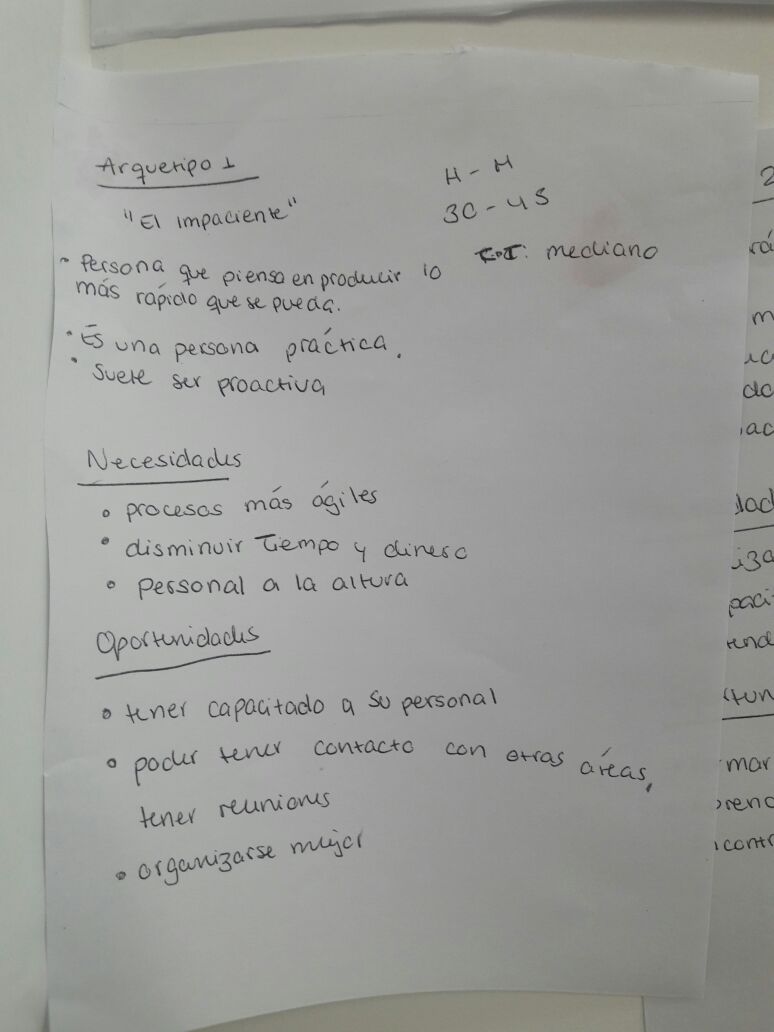 Arquetipo 1
"El impaciente"
H - M
30 - 45
• Persona que piensa en producir lo
más rápido que se pueda.
mediano
• Es una persona práctica.
• Suele ser proactiva
Necesidades
• procesos más ágiles
• disminuir Tiempo y dinero
• personal a la altura
Oportunidades
• tener capacitado a su personal
• poder tener contacto con otras áreas,
tener reuniones
• organizarse mejor
2